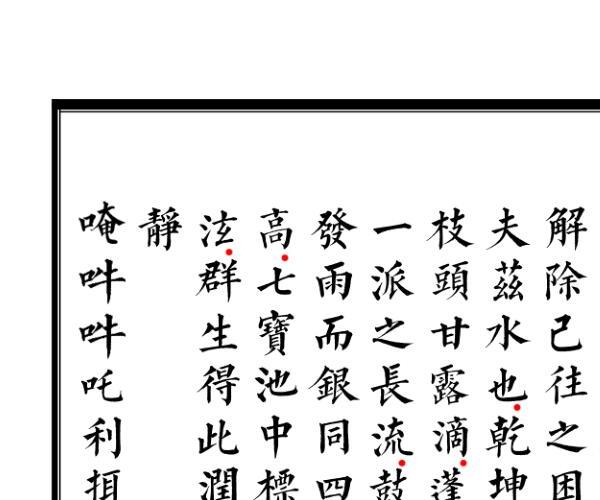 解除已往之困
夫茲水也乾坤
枝頭甘露滴蓬
一派之長流鼓
發雨而銀同四
高七寶池中標
泫群生得此潤
靜
唵吽吽吒利挕